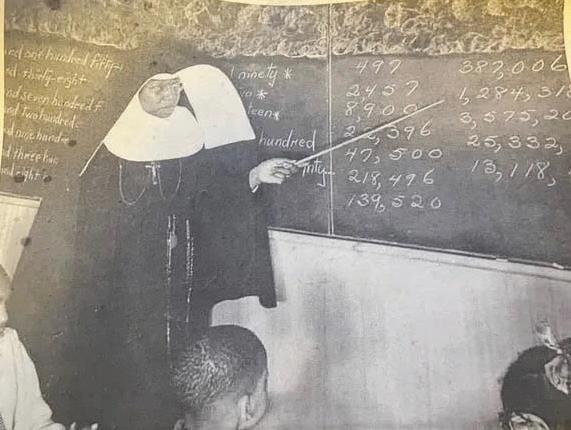 and one hundred fifty-
thirty-eight
and seven hundred f
and two hundred
nine hundre
three hu
eight
ninety *
*
teen *
hundred
nty-
497
2457
8,900
,396
47,500
218,496
139,520
387,006
1,284,318
3,575,20
25,332,
13,118,